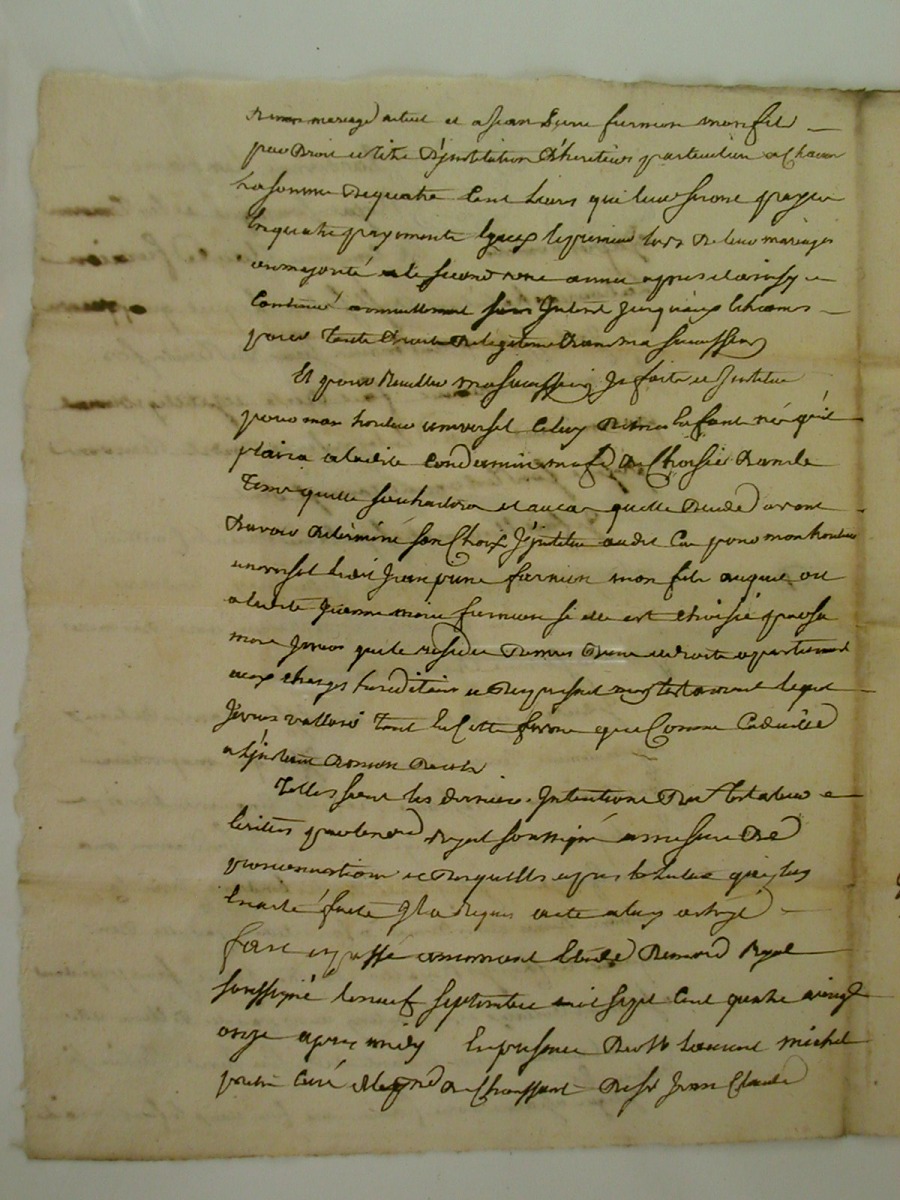 de mon mariage actuel et a jean pierre furnion mon fils
par droit et titre d'institution d'heritiers particuliers a chacun
la somme de quatre cent livres qui leur seront payées
en quatre payements egaux le premier lors de leur mariage
ou majorité le second une année apres et ainsy
continué annuellement sans interet jusqu'aux echeances
pour toute droits de legitime dans ma succession
Et pour recueillir ma succession je fais et institue
pour mon heritier universel celuy de mes enfants nés qu'il
plaira a ladite condamin ma f.e de choisir dans le
tems quelle souhaitera et au cas quelle decede avant
davoir determiné son choix j'institue audit cas pour mon heritier
universel ledit jean pierre furnion mon fils auquel ou
a ladite marie furnion si elle est choisie par sa
mere je veux que le residu de mes biens et droits appartiennent
aux charges hereditaires et du present mon testament lequel
je veux valloir tant en cette forme que comme codicille
a l'instant de mon deces
Telles sont les dernieres intentions du testateur
ecrites par le no.re royal soussigné a mesure de
prononciation et desquelles apres lecture qui luy
en a eté faite il a requis acte a luy octroyé
fait et passé etude du no.re royal
soussigné le neuf septembre mil sept cent quatre vingt
onze apres midy En presence de M.e Laurent michel
curé de Chaussant de S.r jean Claude